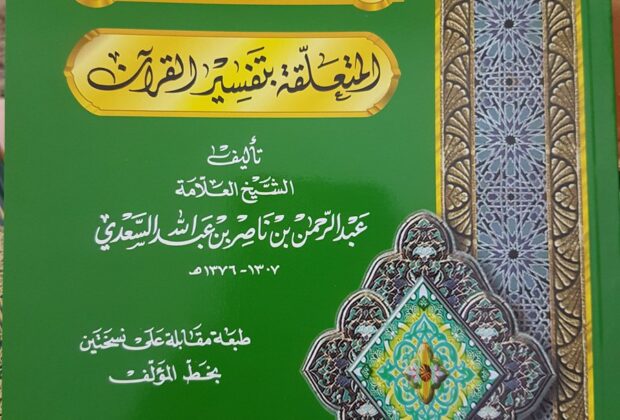 المتعلقة بتفسير القرآن
تأليف
الشيخ العلامة
عبد الرحمن بن ناصر بن عبد الله السعدي
١٣٠٧-١٣٧٦هـ
طبعة مقابلة على نسختين
بخط المؤلف